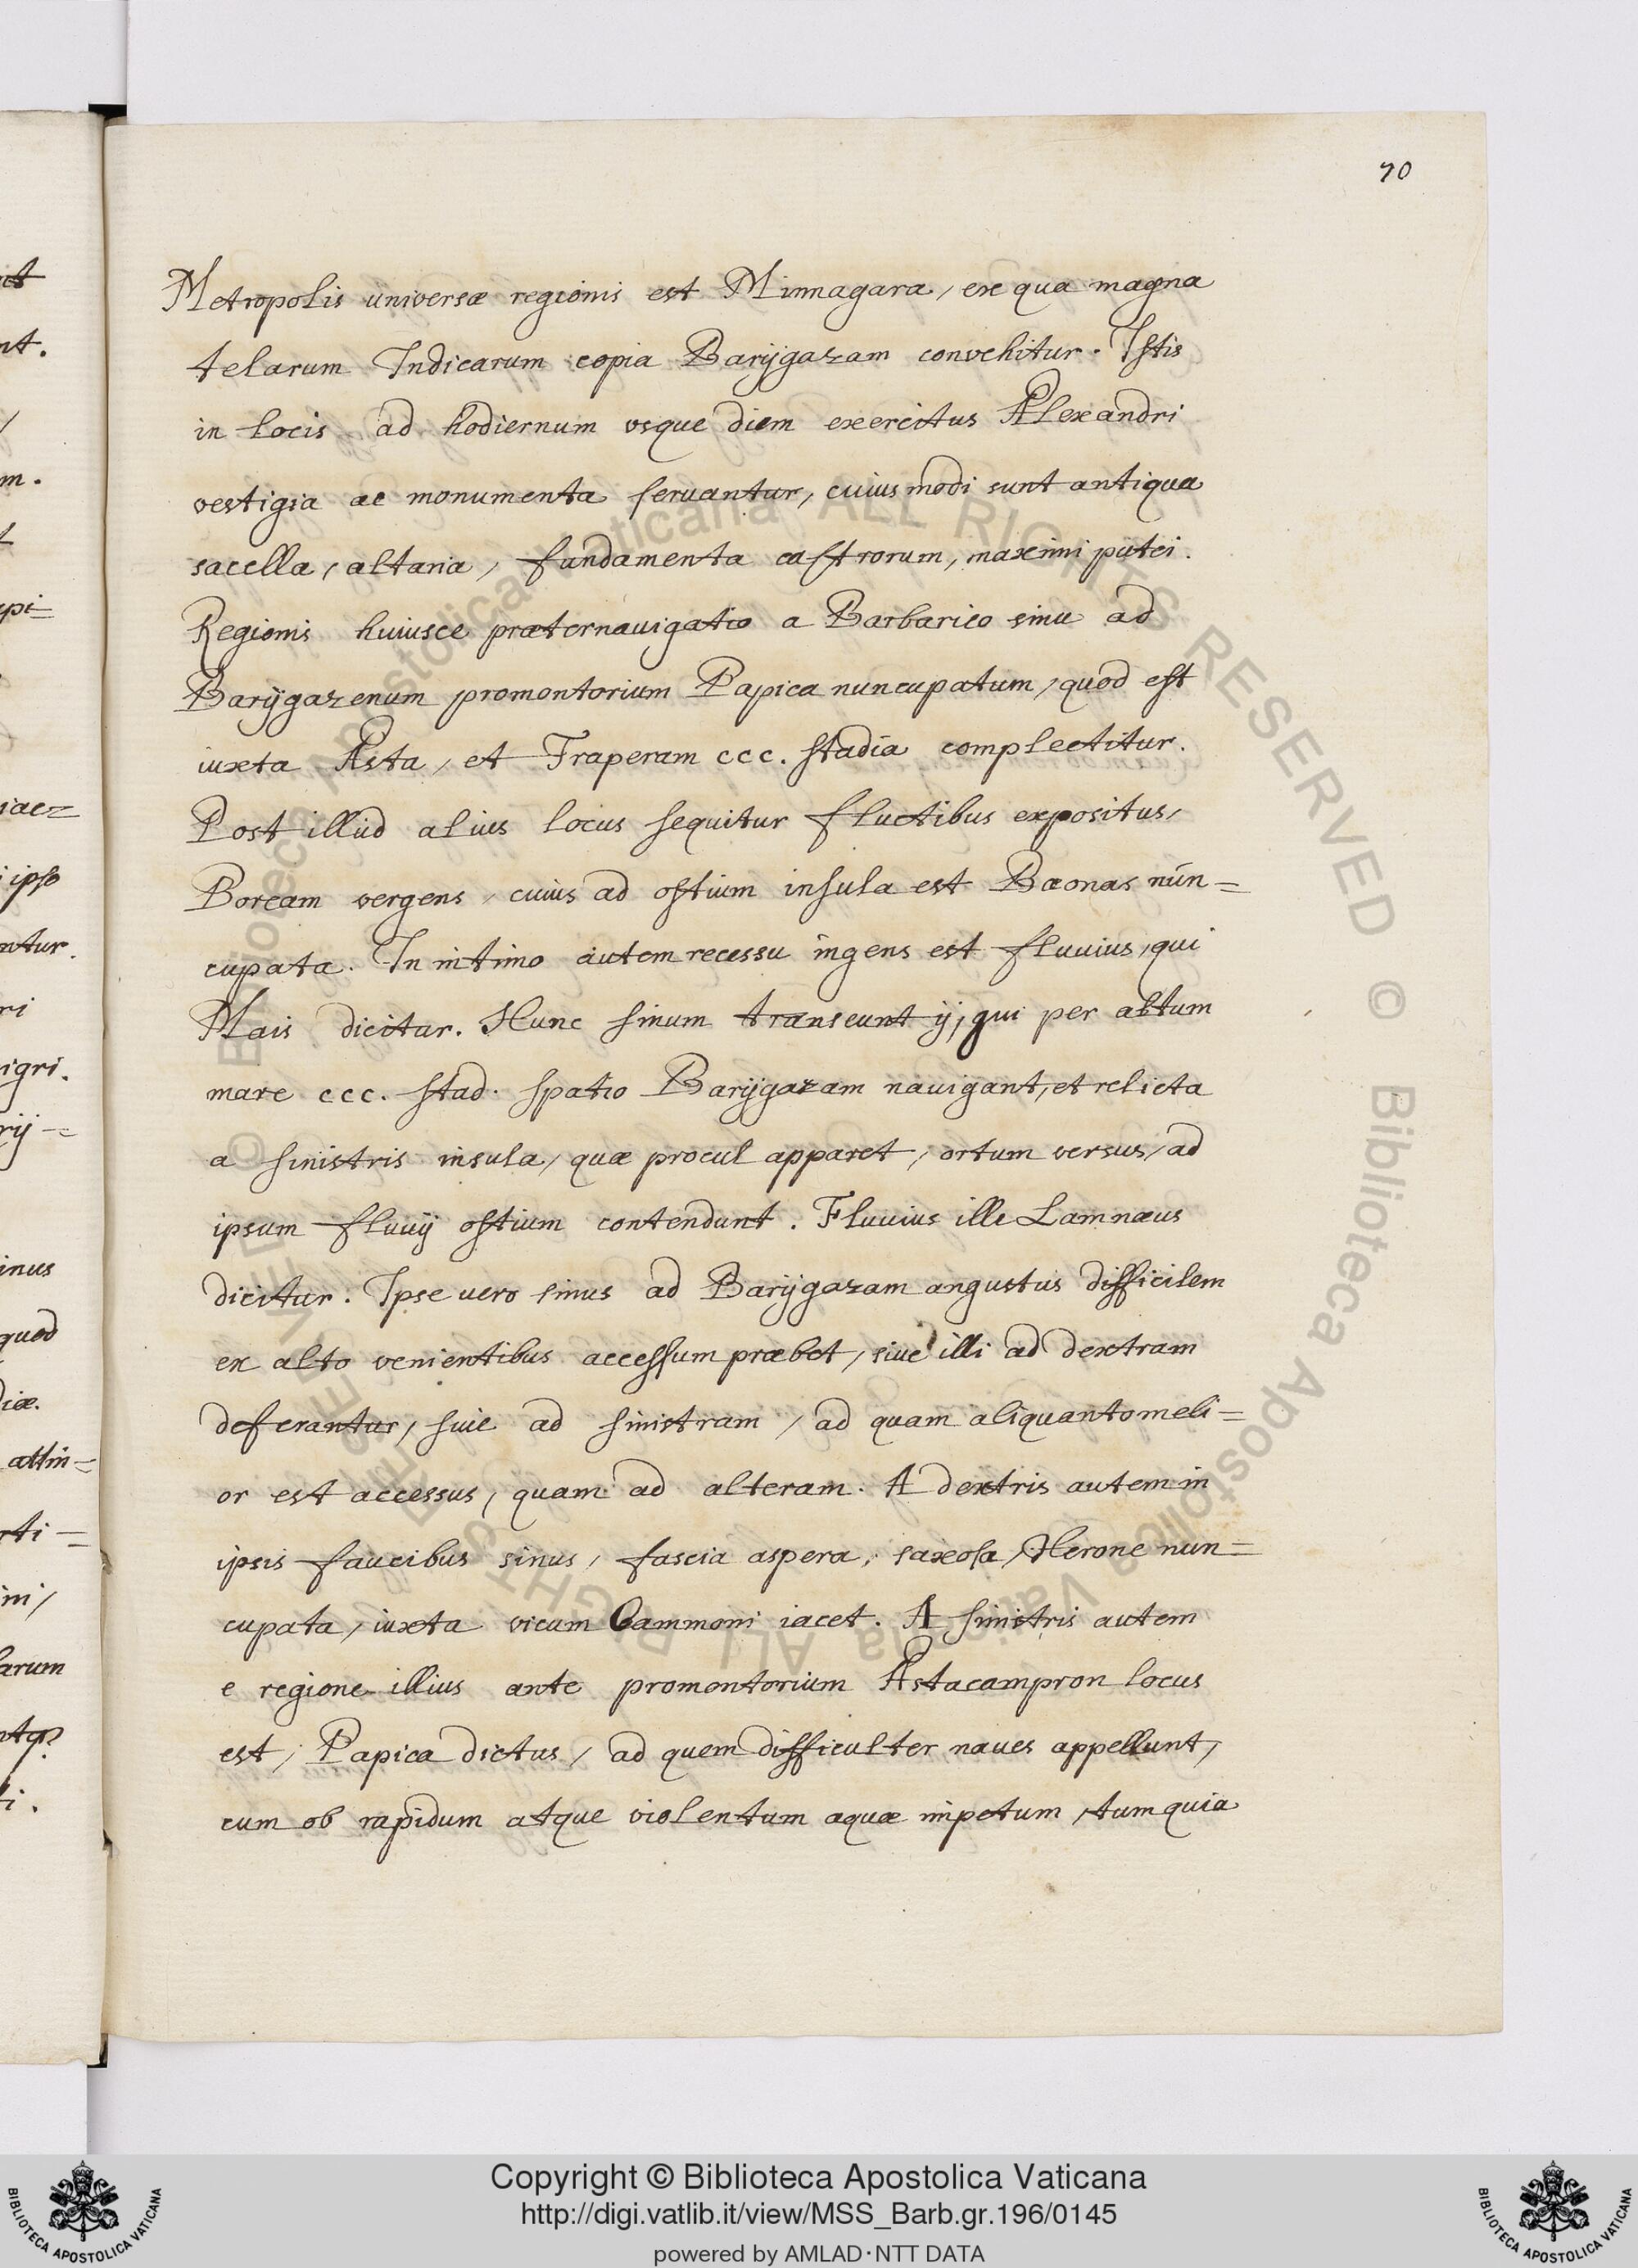 70
Metropolis universæ regionis est Minnagara, ex qua magna
telarum Indicarum copia Barijgazam convehitur. Istis
in locis ad hodiernum vsque diem exercitus Alexandri
vestigia ac monumenta seruantur, cuiusmodi sunt antiqua
sacella, altaria, fundamenta castrorum, maximi putei.
Regionis huiusce præternauigatio a Barbarico sinu ad
Barijgazenum promontorium Papica nuncupatum, quod est
iuxta Asta, et Traperam ccc. stadia complectitur.
Post illud alius locus sequitur fluctibus expositus,
Boream vergens, cuius ad ostium insula est Bæonas nun=
cupata. In intimo autem recessu ingens est fluuius, qui
Mais dicitur. Hunc sinum transeunt ij, qui per altum
mare ccc. stad. spatio Barijgazam nauigant, et relicta
a sinistris insula, quæ procul apparet, ortum versus, ad
ipsum fluuij ostium contendunt. Fluuius ille Lamnæus
dicitur. Ipse uero sinus ad Barijgazam angustus difficilem
ex alto venientibus accessum præbet, siue illi ad dextram
deferantur, siue ad sinistram, ad quam aliquanto meli=
or est accessus, quam ad alteram. A dextris autem in
ipsis faucibus sinus, fascia aspera, saxosa, Herone nun=
cupata, iuxta vicum Cammoni iacet. A sinistris autem
e regione illius ante promontorium Astacampron locus
est, Papica dictus, ad quem difficulter naues appellunt,
cum ob rapidum atque violentum aquæ impetum, tum quia
Copyright © Biblioteca Apostolica Vaticana
http://digi.vatlib.it/view/MSS_Barb.gr.196/0145
powered by AMLAD·NTT DATA
BIBLIOTECA APOSTOLICA VATICANA
BIBLIOTECA APOSTOLICA VATICANA